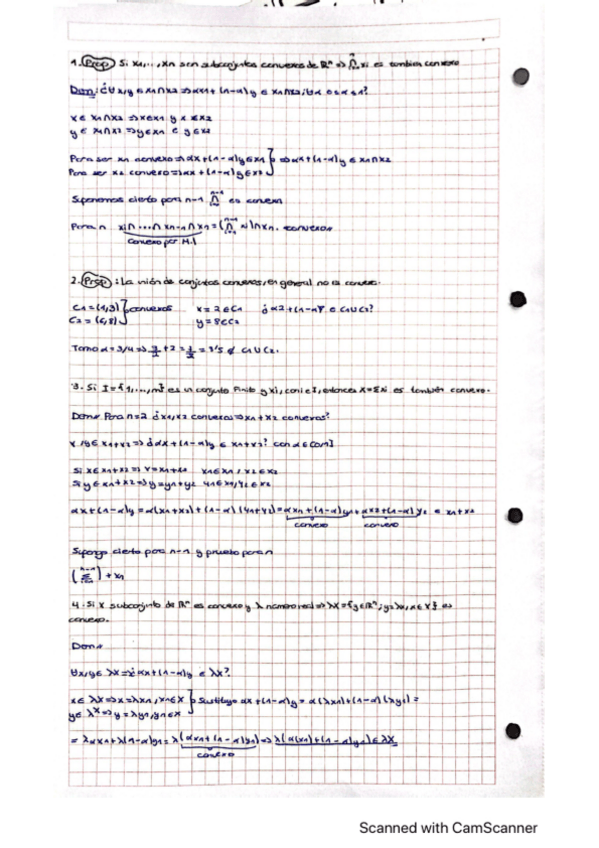 1. Prop Si x1,...,xn son subconjuntos convexos de ℝⁿ ⇒ ∩ xi es también convexo
Dem: ¿∀ x,y ∈ x1∩x2 ⇒ αx+(1-α)y ∈ x1∩x2; ∀α 0≤α≤1?
x ∈ x1∩x2 ⇒ x∈x1 y x∈x2
y ∈ x1∩x2 ⇒ y∈x1 e y∈x2
Para ser x1 convexo ⇒ αx+(1-α)y∈x1 } ⇒ αx+(1-α)y ∈ x1∩x2
Para ser x2 convexo ⇒ αx+(1-α)y∈x2
Suponemos cierto para n-1 ∩ es convexo
Para n xi∩...∩ xn-1∩ xn = (∩ xi)∩xn. convexos
convexo por H.I
2. Prop: La unión de conjuntos convexos, en general no es convexo.
C1 = (1,3) } convexos x = 2 ∈ C1
C2 = (6,8) y = 8∈C2
Tomo α = 3/4 ⇒ ∉ C1 ∪ C2.
3. Si I={1,...,m} es un conjunto finito y xi, con i∈I, entonces X=Σxi es también convexo.
Dem: Para n=2 ¿x1,x2 convexos ⇒ x1+x2 convexos?
x,y∈ x1+x2 ⇒ ¿αx+(1-α)y ∈ x1+x2? con α∈[0,1]
Si x∈ x1+x2 ⇒ x1∈x1, x2∈x2
Si y∈ x1+x2 ⇒ y=y1+y2 y1∈x1, y2∈x2
αx+(1-α)y = α(x1+x2)+(1-α)(y1+y2) = αx1+(1-α)y1+αx2+(1-α)y2 ∈ x1+x2
convexo convexo
Supongo cierto para n-1 y pruebo para n
(Σ) + xn
4. Si X subconjunto de ℝⁿ es convexo y λ número real ⇒ λX={y∈ℝⁿ; y=λx, x∈X} es
convexo.
Dem:
∀x,y∈ λX ⇒ ¿αx+(1-α)y ∈ λX?
x∈ λX ⇒ x=λx1, x1∈X } Sustituyo αx+(1-α)y = α(λx1)+(1-α)(λy1) =
y∈ λX ⇒ y=λy1, y1∈X
= λαx1+λ(1-α)y1 = λ(αx1+(1-α)y1) ⇒ λ(α(x1)+(1-α)y1)∈ λX
convexo
Scanned with CamScanner